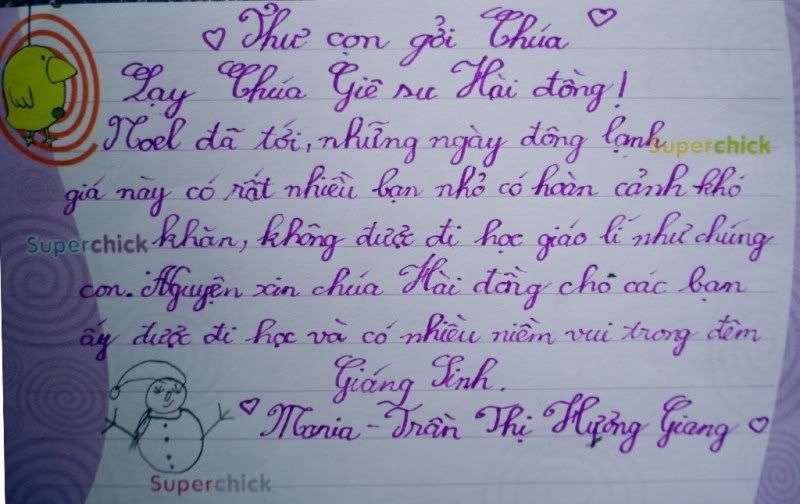 Thư con gởi Chúa
Lạy Chúa Giê su Hài đồng!
Noel đã tới, những ngày đông lạnh
Superchick
giá này có rất nhiều bạn nhỏ có hoàn cảnh khó
Superchick
khăn, không được đi học giáo lí như chúng
con. Nguyện xin chúa Hài đồng cho các bạn
ấy được đi học và có nhiều niềm vui trong đêm
Giáng Sinh.
Maria - Trần Thị Hương Giang
Superchick